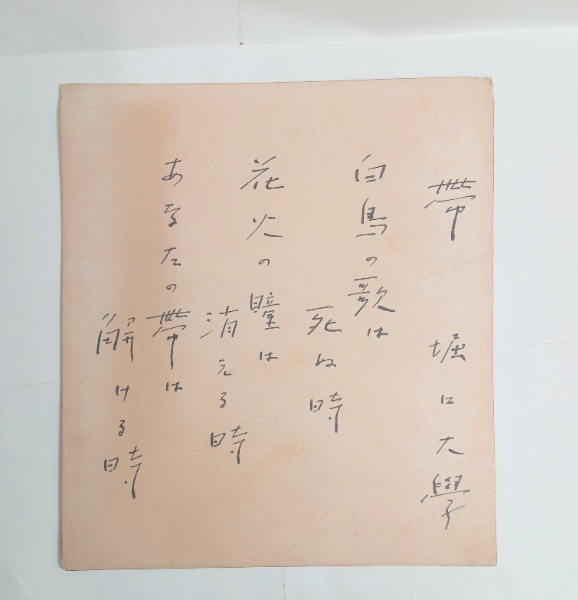 帶
堀口大學
白鳥の歌は
死ぬ時
花火の瞳は
消える時
あなたの帶は
解ける時